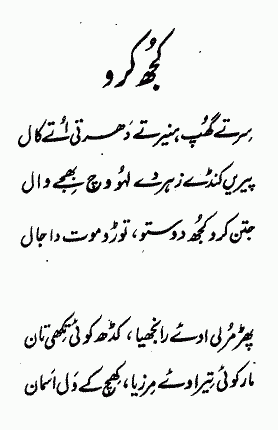 کُجھ کرو
سِرتے گھُپ ہنیرتے دَھرتی اُتے کال
پیریں کنڈے زہر دے لہُو وِچ بھِجے وال
جتن کرو کجُھ دوستو، توڑو موت دا جال
پھڑ مُرلی اوئے رانجھیا، کڈھ کوئی تِکھی تان
مار کوئی تِیر اوئے مِرزیا، کھِچ کے وَل اسمان